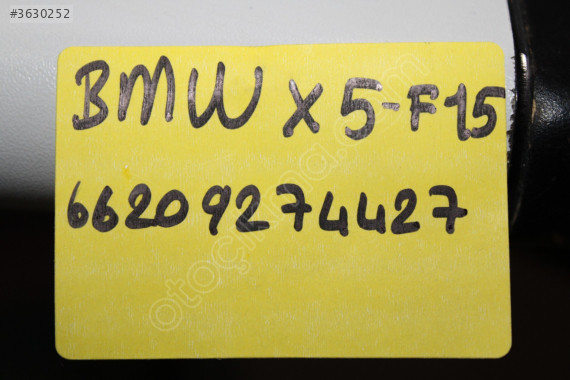 #3630252
BMW X5-F15
66209274427
otocikma.com